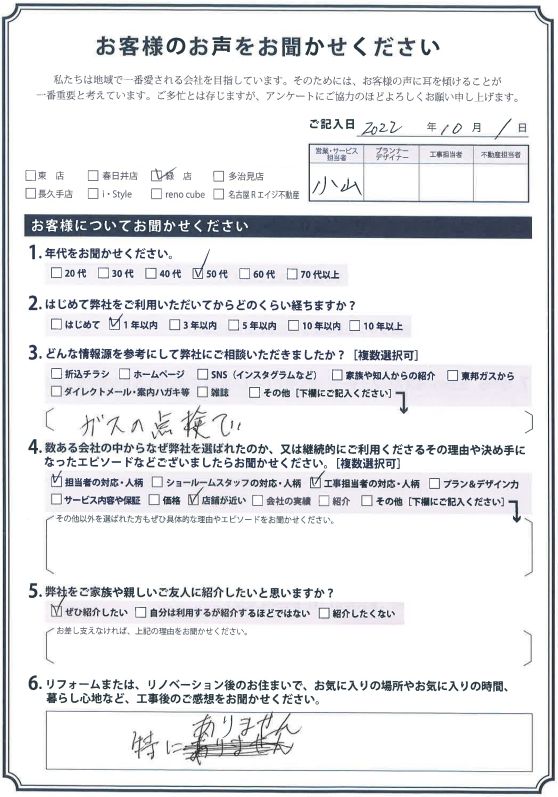 お客様のお声をお聞かせください
私たちは地域で一番愛される会社を目指しています。そのためには、お客様の声に耳を傾けることが
一番重要と考えています。ご多忙とは存じますが、アンケートにご協力のほどよろしくお願い申し上げます。
ご記入日 2022 年 10 月 1 日
営業・サービス担当者 プランナーデザイナー 工事担当者 不動産担当者
小山
□東 店 □春日井店 ☑緑 店 □多治見店
□長久手店 □i・Style □reno cube □名古屋Rエイジ不動産
お客様についてお聞かせください
1. 年代をお聞かせください。
□20代 □30代 □40代 ☑50代 □60代 □70代以上
2. はじめて弊社をご利用いただいてからどのくらい経ちますか？
□はじめて ☑1年以内 □3年以内 □5年以内 □10年以内 □10年以上
3. どんな情報源を参考にして弊社にご相談いただきましたか？［複数選択可］
□折込チラシ □ホームページ □SNS（インスタグラムなど） □家族や知人からの紹介 □東邦ガスから
□ダイレクトメール・案内ハガキ等 □雑誌 □その他［下欄にご記入ください］
ガスの点検で
4. 数ある会社の中からなぜ弊社を選ばれたのか、又は継続的にご利用くださるその理由や決め手に
なったエピソードなどございましたらお聞かせください。［複数選択可］
☑担当者の対応・人柄 □ショールームスタッフの対応・人柄 ☑工事担当者の対応・人柄 □プラン＆デザイン力
□サービス内容や保証 □価格 ☑店舗が近い □会社の実績 □紹介 □その他［下欄にご記入ください］
その他以外を選ばれた方もぜひ具体的な理由やエピソードをお聞かせください。
5. 弊社をご家族や親しいご友人に紹介したいと思いますか？
☑ぜひ紹介したい □自分は利用するが紹介するほどではない □紹介したくない
お差し支えなければ、上記の理由をお聞かせください。
6. リフォームまたは、リノベーション後のお住まいで、お気に入りの場所やお気に入りの時間、
暮らし心地など、工事後のご感想をお聞かせください。
ありません
特にありません